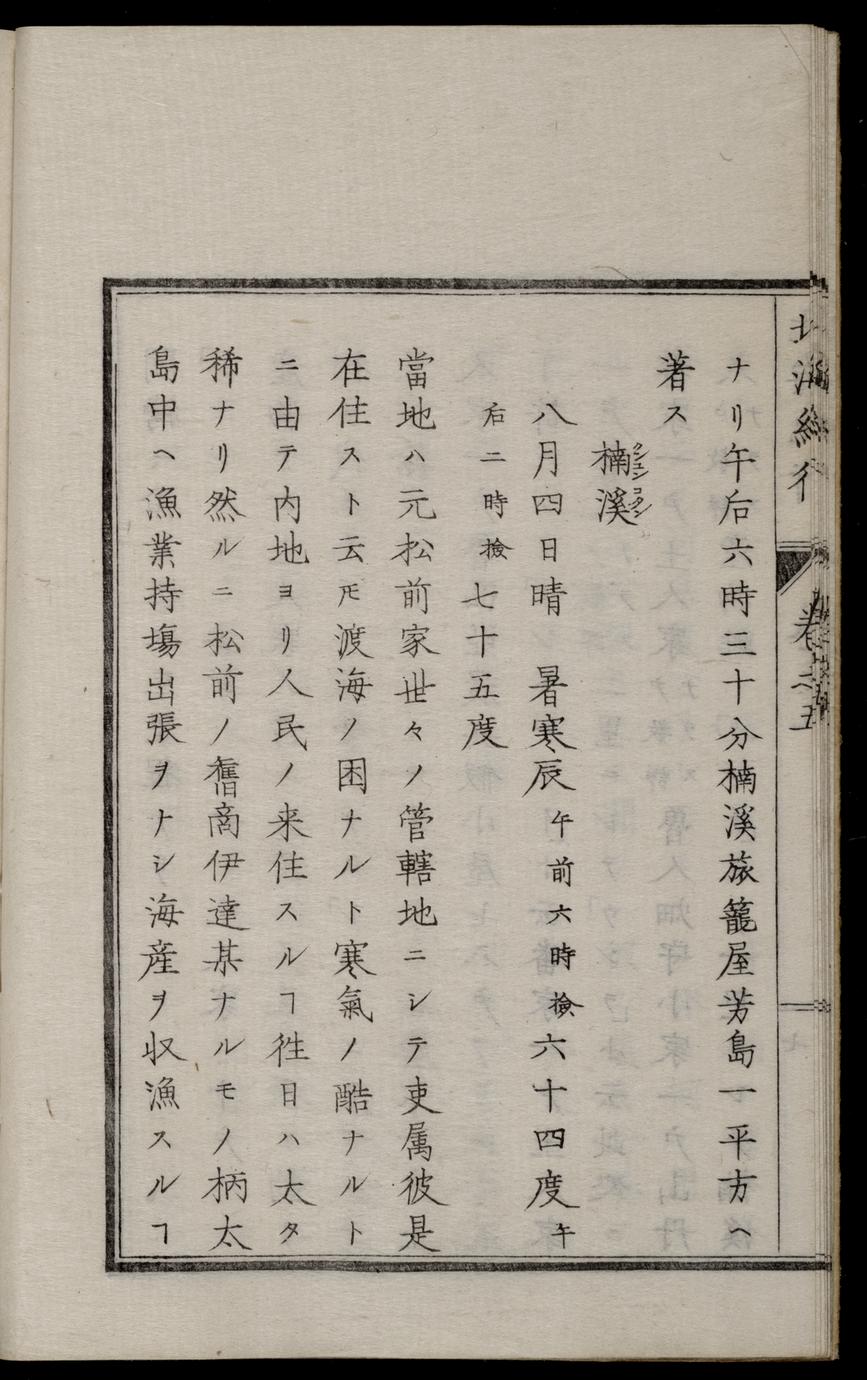 ナリ午后六時三十分楠溪旅籠屋芳島一平方ヘ
著ス
楠溪
クシユンコタン
八月四日晴　暑寒辰午前六時檢六十四度午
后二時檢七十五度
當地ハ元松前家世々ノ管轄地ニシテ吏属彼是
在住スト云𪜈渡海ノ困ナルト寒氣ノ酷ナルト
ニ由テ内地ヨリ人民ノ来住スルヿ徃日ハ太タ
稀ナリ然ルニ松前ノ舊商伊達某ナルモノ柄太
島中ヘ漁業持塲出張ヲナシ海産ヲ収漁スルヿ